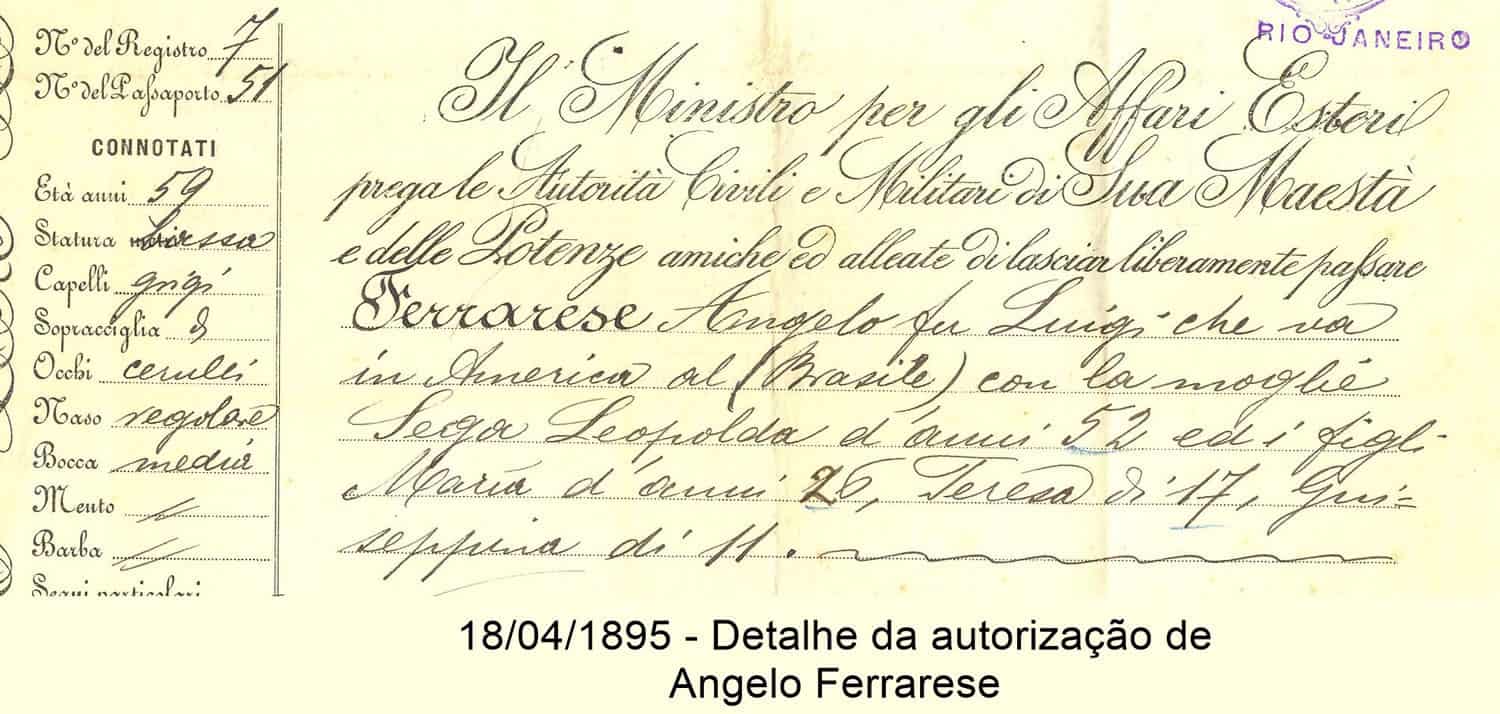 RIO JANEIRO
Nº del Registro 7
Nº del Passaporto 51
CONNOTATI
Età anni 59
Statura bassa
Capelli grigi
Sopracciglia d
Occhi cerulei
Naso regolare
Bocca media
Mento
Barba
Segni particolari
Il Ministro per gli Affari Esteri
prega le Autorità Civili e Militari di Sua Maestà
e delle Potenze amiche ed alleate di lasciar liberamente passare
Ferrarese Angelo fu Luigi che va
in America al (Brasile) con la moglie
Sega Leopolda d'anni 52 ed i figli
Maria d'anni 26, Teresa di 17, Giu=
seppina di 11.
18/04/1895 - Detalhe da autorização de
Angelo Ferrarese